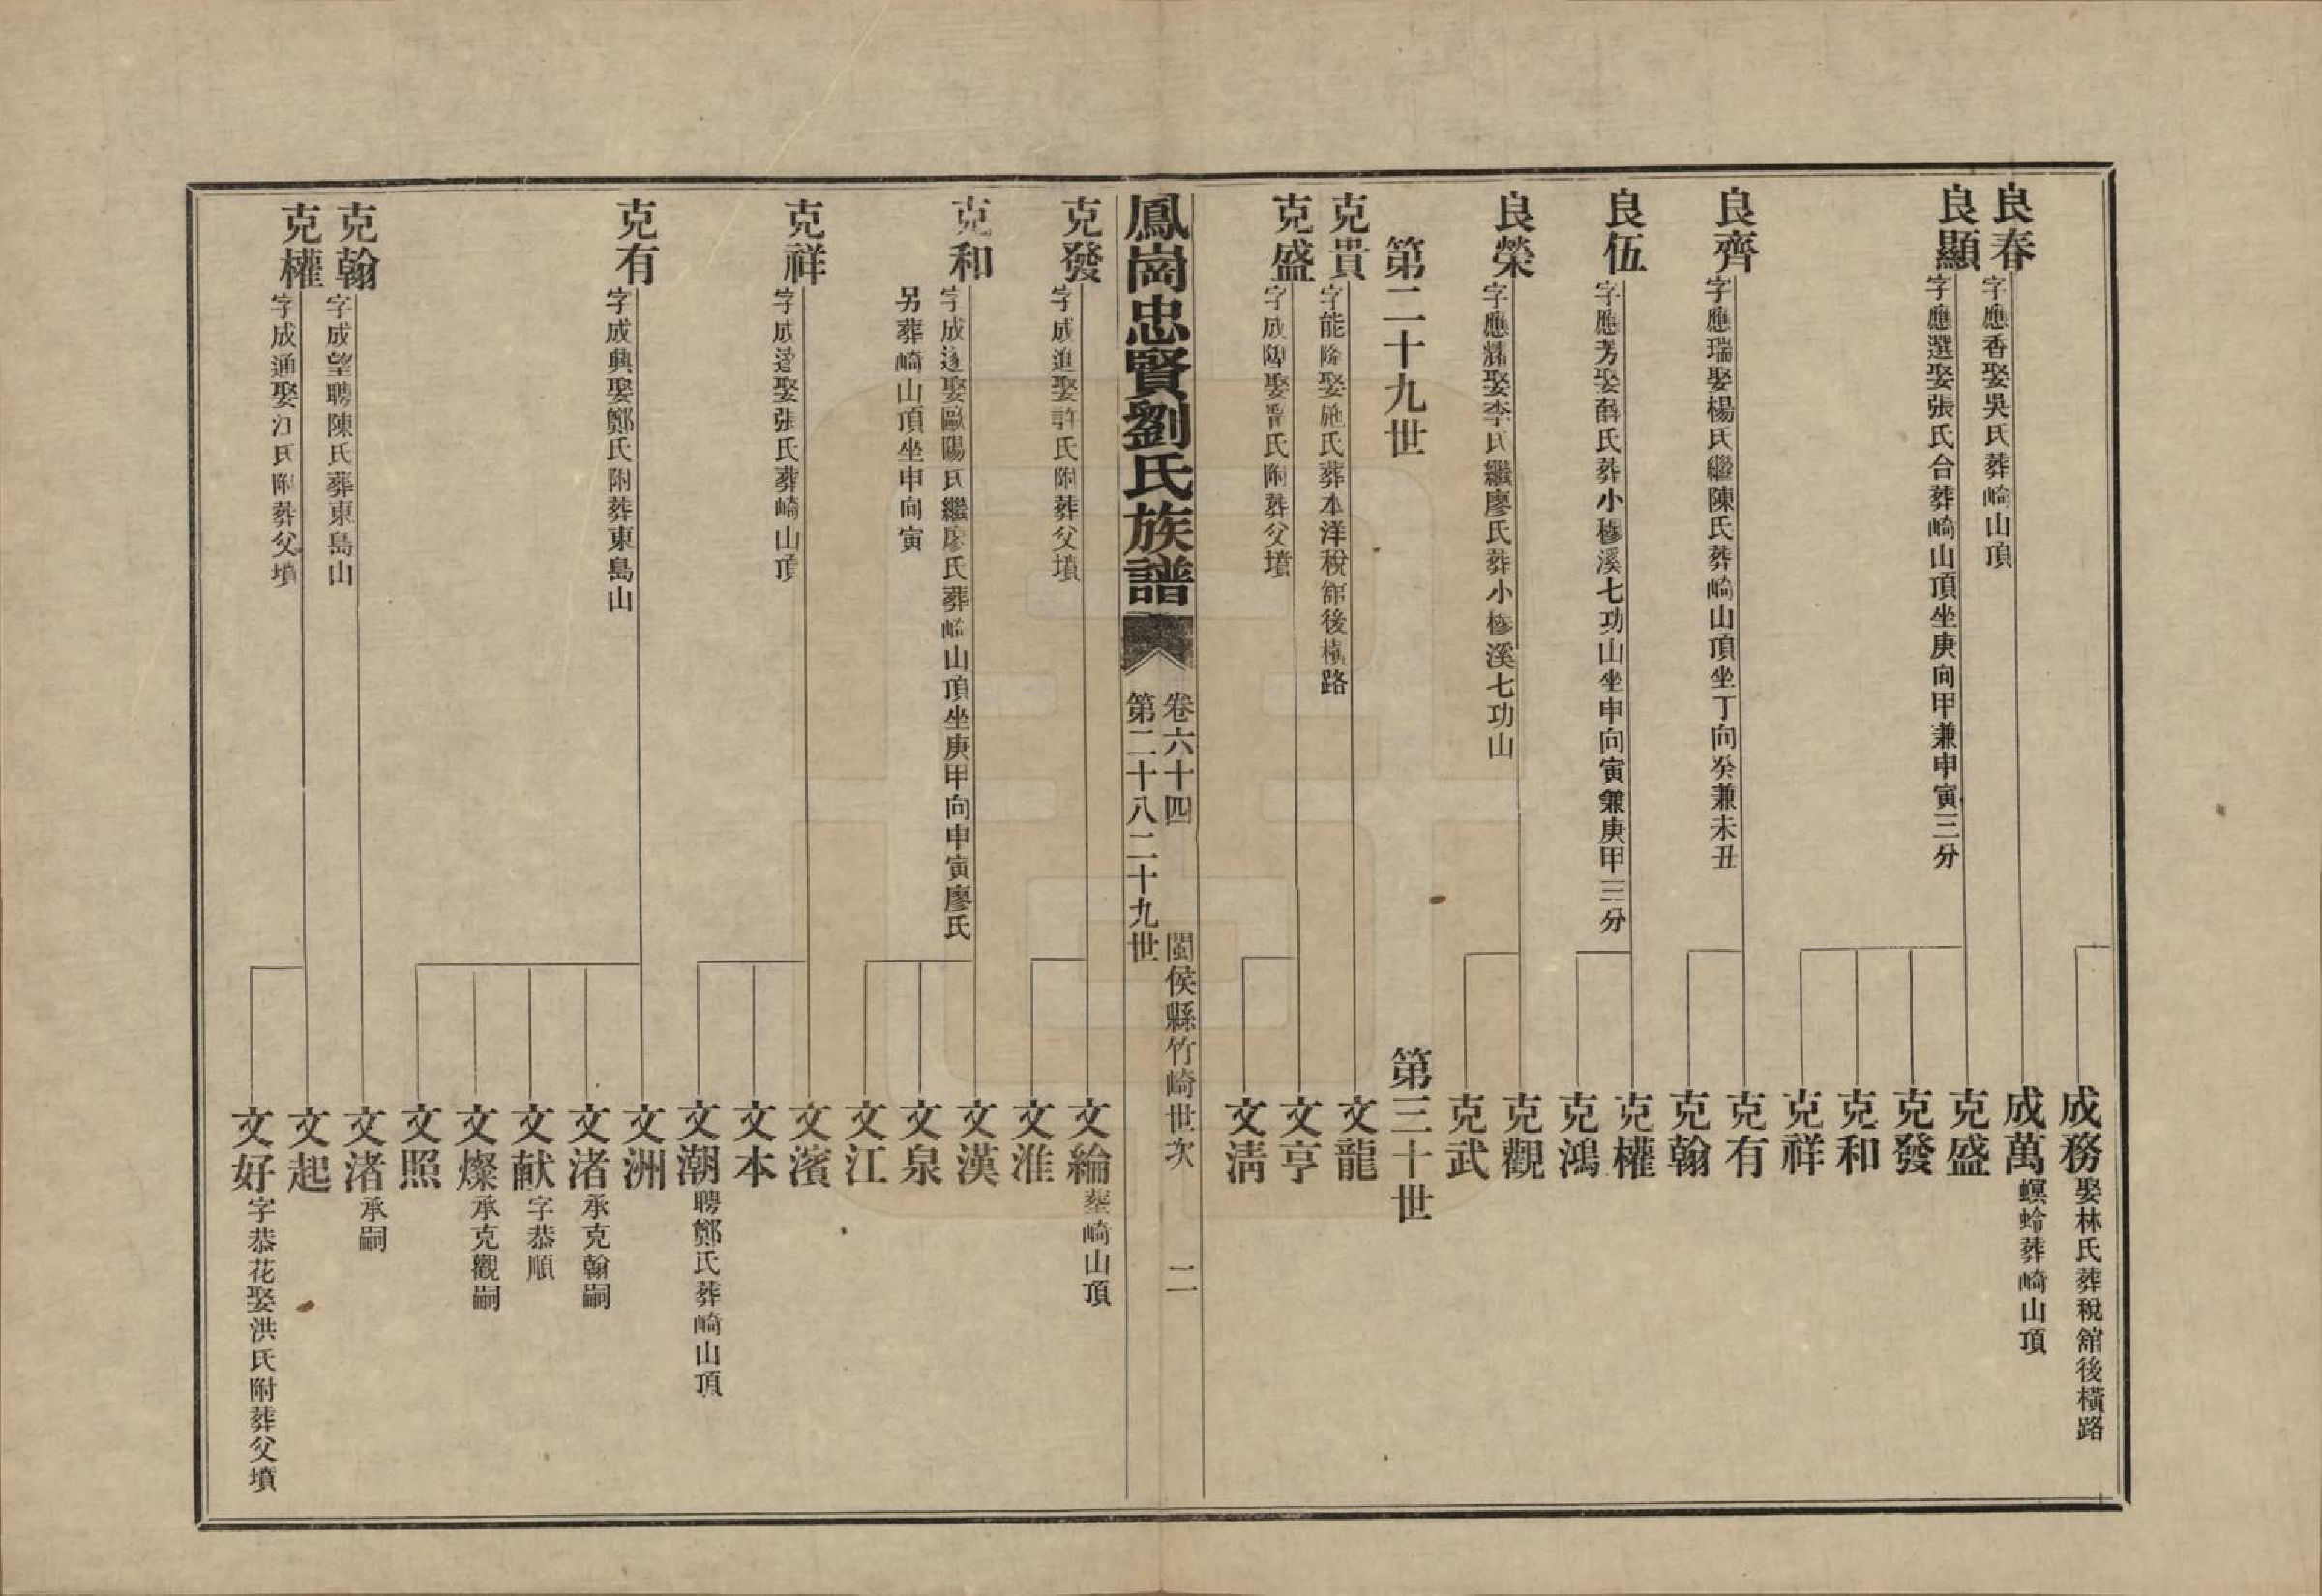 成務 娶林氏葬稅舘後橫路
良春 字應香娶吳氏葬崎山頂
成萬 螟蛉葬崎山頂
良顯 字應選娶張氏合葬崎山頂坐庚向甲兼申寅三分
克盛
克發
克和
克祥
良齊 字應瑞娶楊氏繼陳氏葬崎山頂坐丁向癸兼未丑
克有
克翰
良伍 字應芳娶薛氏葬小穆溪七功山坐申向寅兼庚甲三分
克權
克鴻
良榮 字應 娶李氏繼廖氏葬小穆溪七功山
克觀
克武
第二十九世
第三十世
克貴 字能隆娶施氏葬本洋稅舘後橫路
文龍
克盛 字成 娶 氏附葬父墳
文亨
文淸
鳳崗忠賢劉氏族譜
卷六十四 閩侯縣竹崎世次 二
第二十八二十九世
克發 字成進娶許氏附葬父墳
文綸 塟崎山頂
文淮
克和 字成遂娶歐陽氏繼廖氏葬崎山頂坐庚甲向申寅廖氏
另葬崎山頂坐申向寅
文漢
文泉
文江
克祥 字成 娶張氏葬崎山頂
文濱
文本
文潮 聘鄭氏葬崎山頂
克有 字成興娶鄭氏附葬東島山
文洲
文渚 承克翰嗣
文献 字恭順
文燦 承克觀嗣
文照
克翰 字成望聘陳氏葬東島山
文渚 承嗣
克權 字成通娶江氏附葬父墳
文起
文好 字恭花娶洪氏附葬父墳